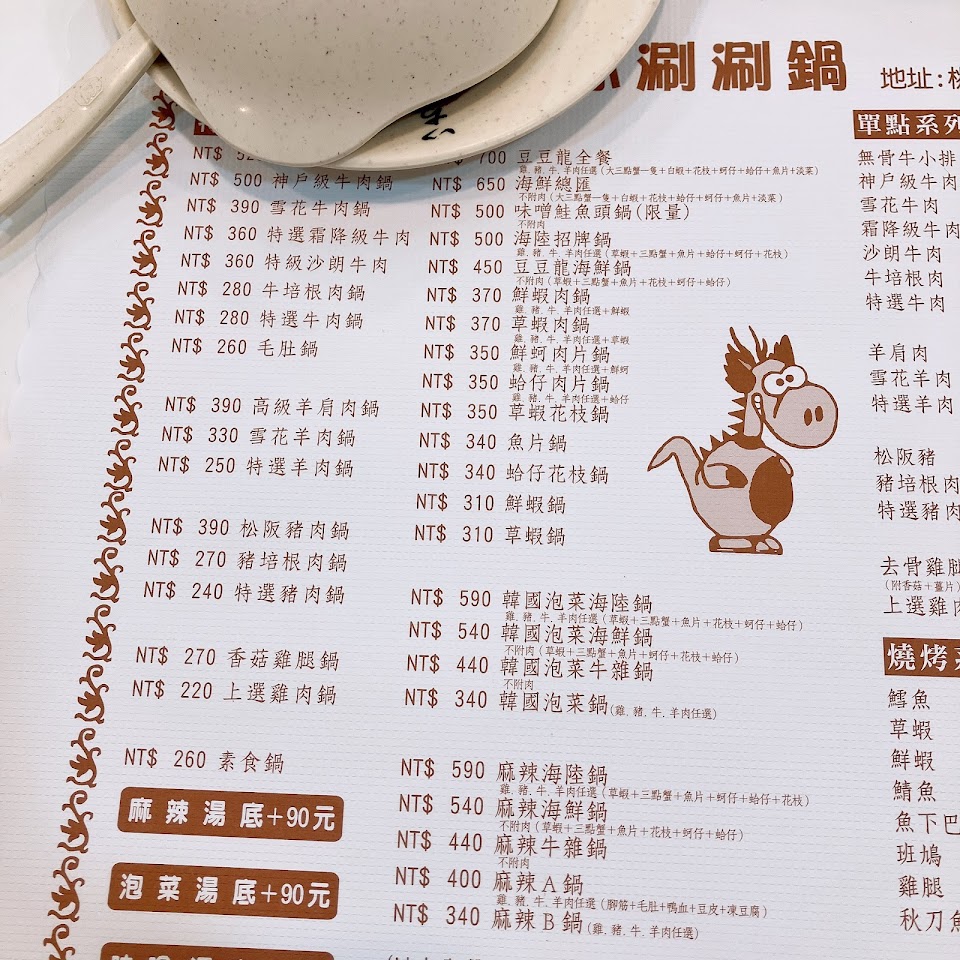 涮涮鍋
地址:
NT$
NT$ 500 神戶級牛肉鍋
NT$ 390 雪花牛肉鍋
NT$ 360 特選霜降級牛肉
NT$ 360 特級沙朗牛肉
NT$ 280 牛培根肉鍋
NT$ 280 特選牛肉鍋
NT$ 260 毛肚鍋
NT$ 390 高級羊肩肉鍋
NT$ 330 雪花羊肉鍋
NT$ 250 特選羊肉鍋
NT$ 390 松阪豬肉鍋
NT$ 270 豬培根肉鍋
NT$ 240 特選豬肉鍋
NT$ 270 香菇雞腿鍋
NT$ 220 上選雞肉鍋
NT$ 260 素食鍋
麻辣湯底+90元
泡菜湯底+90元
700 豆豆龍全餐
雞.豬.牛.羊肉任選(大三點蟹一隻+白蝦+花枝+蚵仔+蛤仔+魚片+淡菜)
NT$ 650 海鮮總匯
不附肉(大三點蟹一隻+白蝦+花枝+蛤仔+蚵仔+魚片+淡菜)
NT$ 500 味噌鮭魚頭鍋(限量)
不附肉
NT$ 500 海陸招牌鍋
雞.豬.牛.羊肉任選(草蝦+三點蟹+魚片+蛤仔+蚵仔+花枝)
NT$ 450 豆豆龍海鮮鍋
不附肉(草蝦+三點蟹+魚片+花枝+蚵仔+蛤仔)
NT$ 370 鮮蝦肉鍋
雞.豬.牛.羊肉任選+鮮蝦
NT$ 370 草蝦肉鍋
雞.豬.牛.羊肉任選+草蝦
NT$ 350 鮮蚵肉片鍋
雞.豬.牛.羊肉任選+鮮蚵
NT$ 350 蛤仔肉片鍋
雞.豬.牛.羊肉任選+蛤仔
NT$ 350 草蝦花枝鍋
NT$ 340 魚片鍋
NT$ 340 蛤仔花枝鍋
NT$ 310 鮮蝦鍋
NT$ 310 草蝦鍋
NT$ 590 韓國泡菜海陸鍋
雞.豬.牛.羊肉任選(草蝦+三點蟹+魚片+花枝+蚵仔+蛤仔)
NT$ 540 韓國泡菜海鮮鍋
不附肉(草蝦+三點蟹+魚片+蚵仔+花枝+蛤仔)
NT$ 440 韓國泡菜牛雜鍋
不附肉
NT$ 340 韓國泡菜鍋(雞.豬.牛.羊肉任選)
NT$ 590 麻辣海陸鍋
雞.豬.牛.羊肉任選(草蝦+三點蟹+魚片+蚵仔+蛤仔+花枝)
NT$ 540 麻辣海鮮鍋
不附肉(草蝦+三點蟹+魚片+花枝+蚵仔+蛤仔)
NT$ 440 麻辣牛雜鍋
不附肉
NT$ 400 麻辣A鍋
雞.豬.牛.羊肉任選(腳筋+毛肚+鴨血+豆皮+凍豆腐)
NT$ 340 麻辣B鍋(雞.豬.牛.羊肉任選)
單點系列
無骨牛小排
神戶級牛肉
雪花牛肉
霜降級牛肉
沙朗牛肉
牛培根肉
特選牛肉
羊肩肉
雪花羊肉
特選羊肉
松阪豬
豬培根肉
特選豬肉
去骨雞腿
(附香菇+薑片)
上選雞肉
燒烤
鱈魚
草蝦
鮮蝦
鯖魚
魚下巴
班鳩
雞腿
秋刀魚